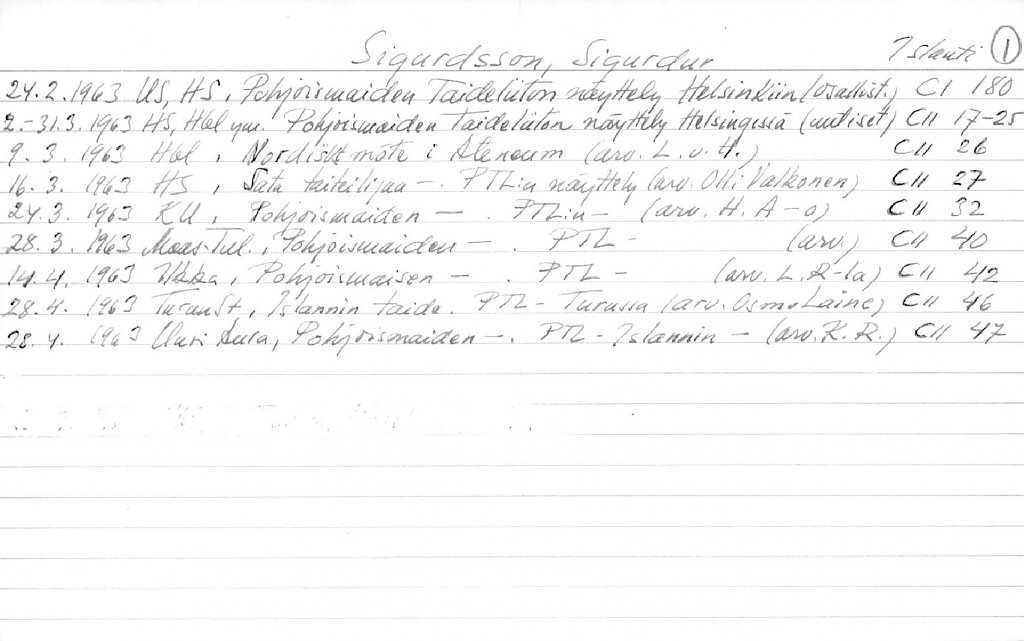 Sigurdsson, Sigurdur Islanti 1
24.2.1963 US, HS, Pohjoismaiden Taideliiton näyttely Helsinkiin (osallist.) CI 180
2.-31.3.1963 HS, Hbl ym. Pohjoismaiden Taideliiton näyttely Helsingissä (uutiset) CII 17-25
9.3.1963 Hbl, Nordiskt möte i Ateneum (arv. L.v.H.) CII 26
16.3.1963 HS, Sata taiteilijaa -. PTL:n näyttely (arv. Olli Valkonen) CII 27
24.3.1963 KU, Pohjoismaiden -. PTL:n - (arv. H.A-o) CII 32
28.3.1963 Maas.Tul., Pohjoismaiden -. PTL - (arv.) CII 40
14.4.1963 Ilkka, Pohjoismaisen -. PTL - (arv. L.R-la) CII 42
28.4.1963 TurunSt, Islannin taide. PTL - Turussa (arv. Osmo Laine) CII 46
28.4.1963 Uusi Aura, Pohjoismaiden -. PTL - Islannin - (arv. K.R.) CII 47